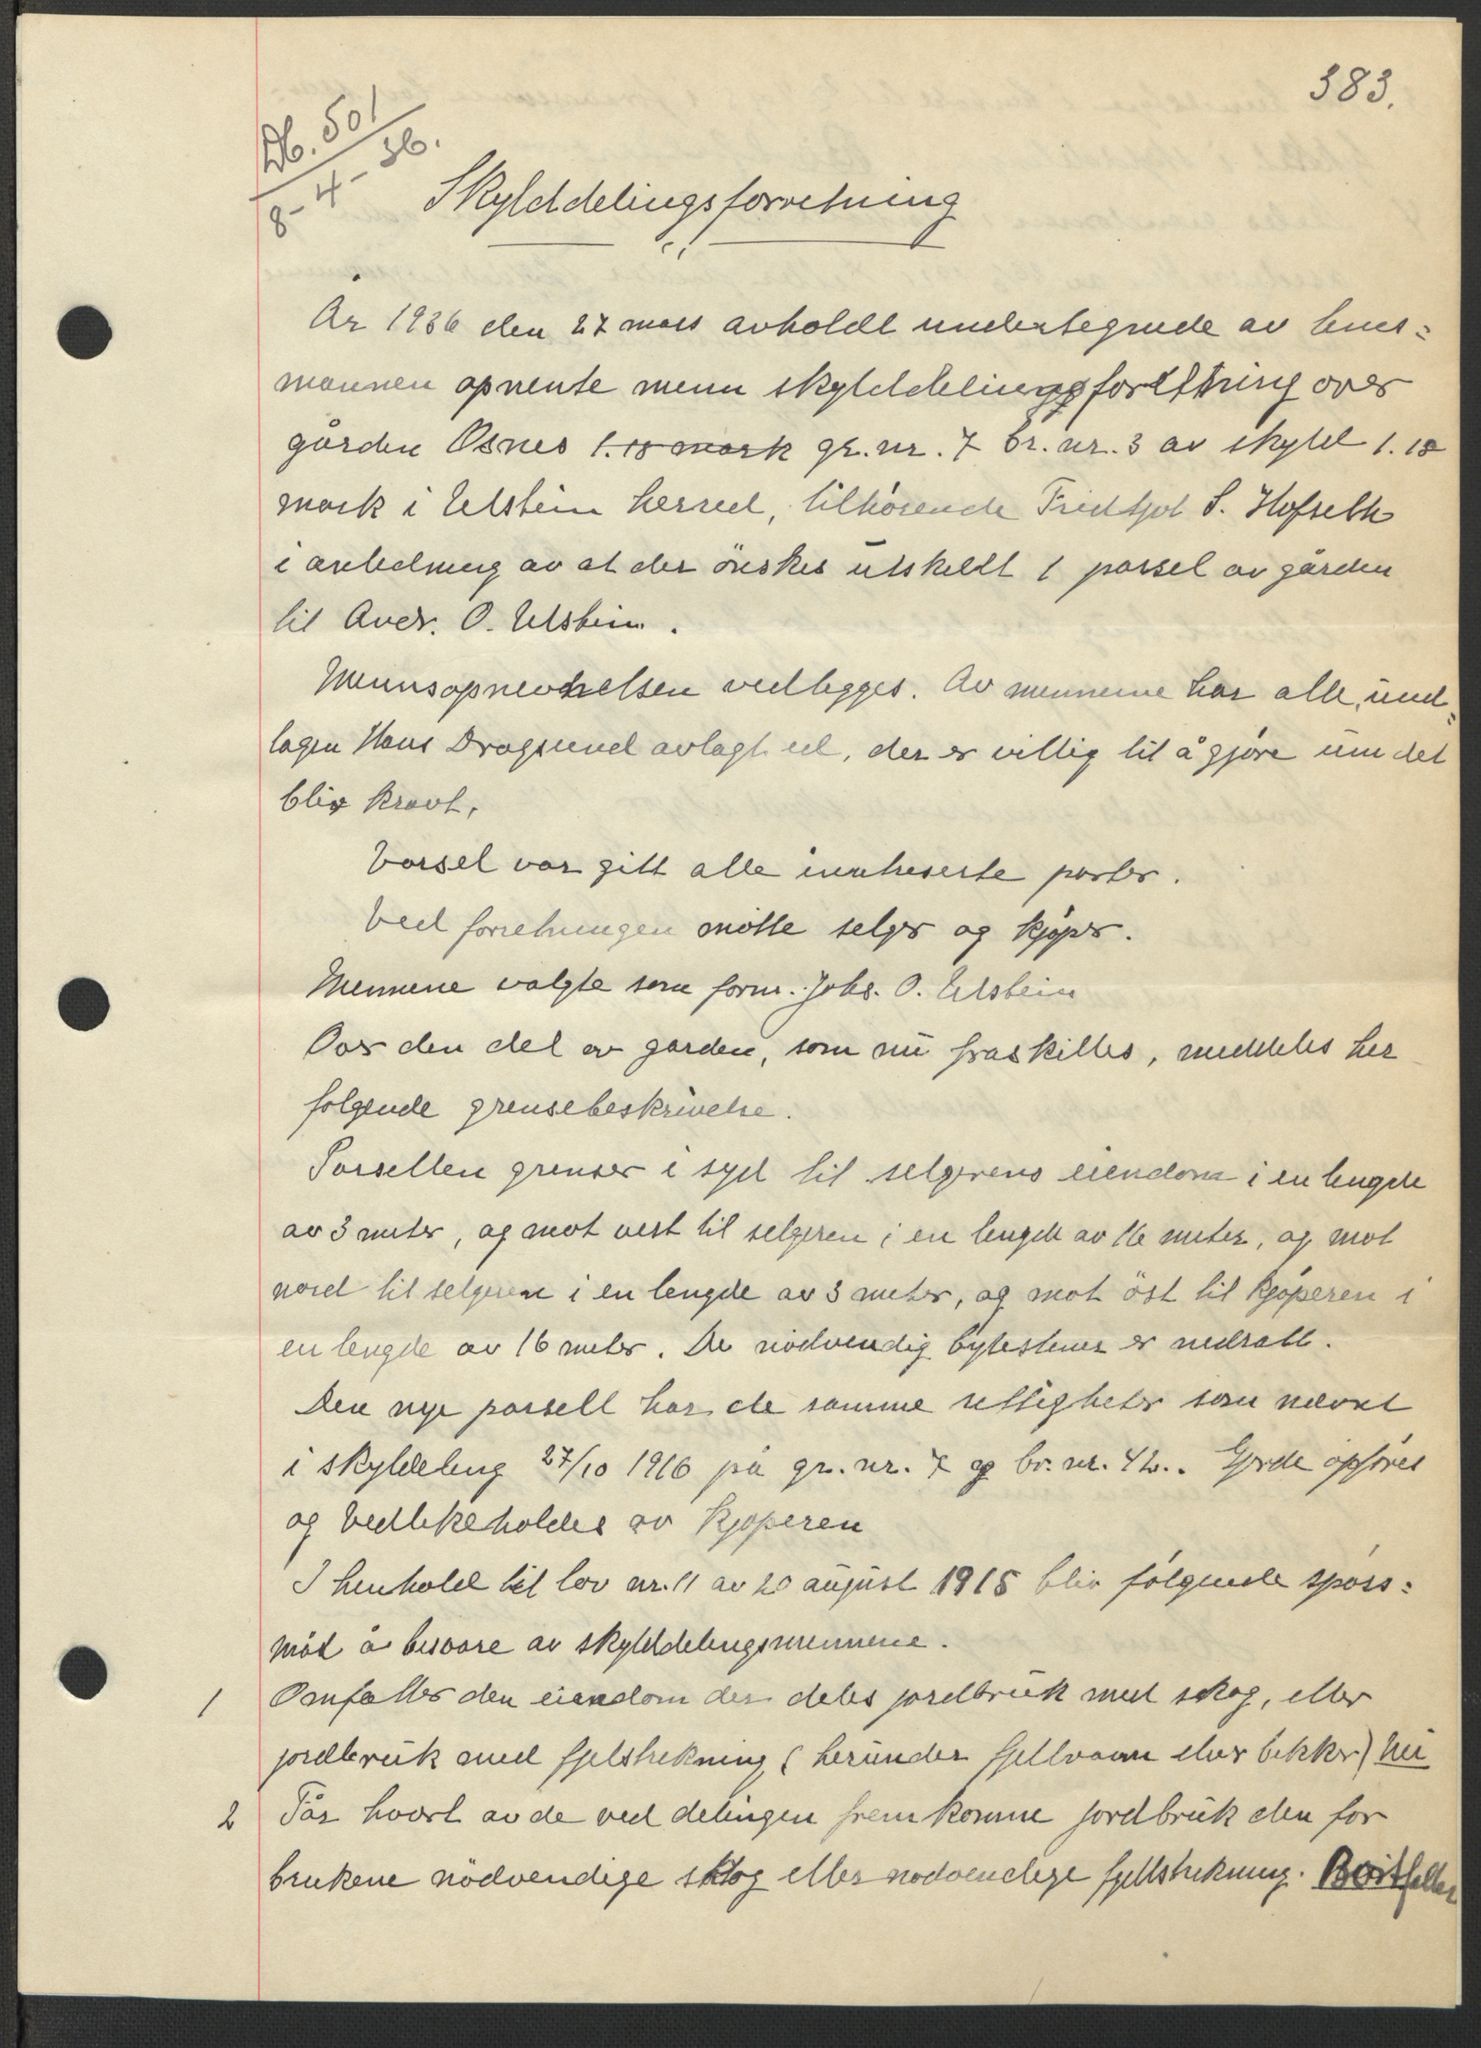 383.
Db. 501
8-4-36.
Skylddelingsforretning
År 1936 den 27 mars avholdt undertegnede av lens=
mannen opnente menn skylddelingsforretning over
gården Osnes 1.18 mark gr. nr. 7 br. nr. 3 av skyld 1.18
mark i Ulstein herred, tilhörende Fridtjof S. Hofseth
i anledning av at der önskes utskeldt 1 parsel av gården
til Andr. O. Ulstein.
Mennsopnevnelsen vedlegges. Av mennene har alle, und=
tagen Hans Dragsund avlagt ed, der er villig til å gjöre um det
bliv kravt.
Varsel var gitt alle inntreserte parter.
Ved forretningen mötte selger og kjöper.
Mennene valgte som form. Johs. O. Ulstein
Over den del av garden, som nu fraskilles, meddeles her
fölgende grensebeskrivelse.
Parsellen grenser i syd til selgerens eiendom i en lengde
av 3 meter, og mot vest til selgeren i en lengde av 16 meter, og mot
nord til selgeren i en lengde av 3 meter, og mot öst til kjöperen i
en lengde av 16 meter. De nödvendig bytestener er nedsatt.
Den nye parsell har de samme rettigheter som nevnt
i skylddeling 27/10 1916 på gr. nr. 7 og br. nr. 42. Gjerde opföres
og vedlikeholdes av kjöperen
I henhold til lov nr. 11 av 20 august 1915 bliv fölgende spörs=
mål å besvare av skylddelingsmennene.
1 Omfatter den eiendom der deles jordbruk med skog, eller
jordbruk med fjelstrekning (herunder fjellvann elver bekker) Nei
2 Får hvert av de ved delingen fremkomne jordbruk den for
brukene nödvendige skog eller nodvendige fjellstrekning. Bortfaller